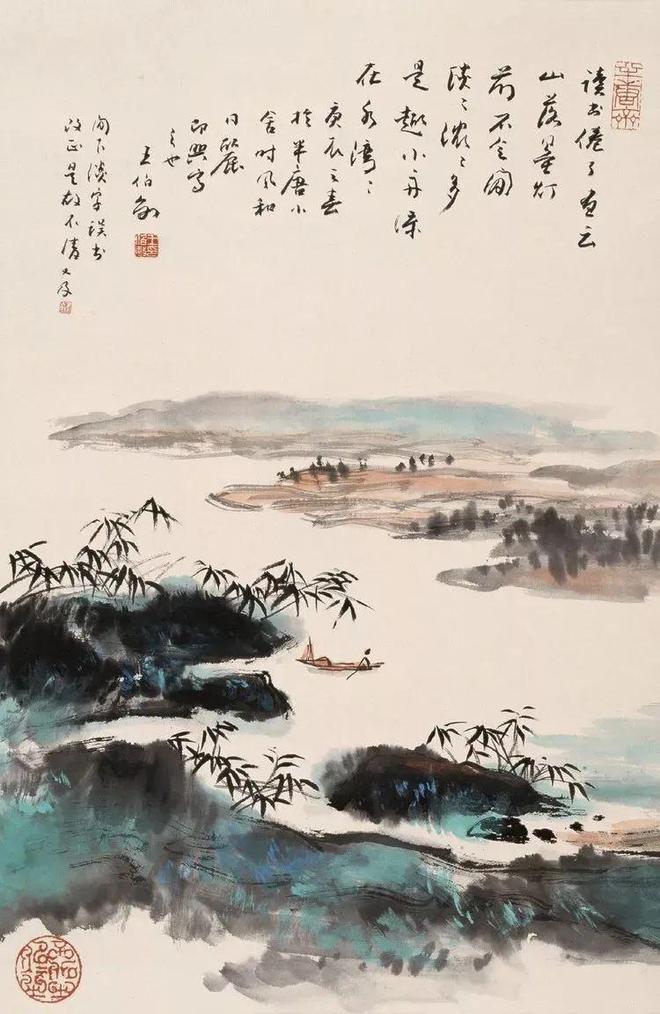 讀书倦了画云
山落墨灯
前不会閒
淡淡濃濃多
是趣小舟
在水灣灣
庚辰之春
於半唐小
舍时風和
日麗
即興写
之也
王伯敏
閒下淡字誤书
改正是故不清又及